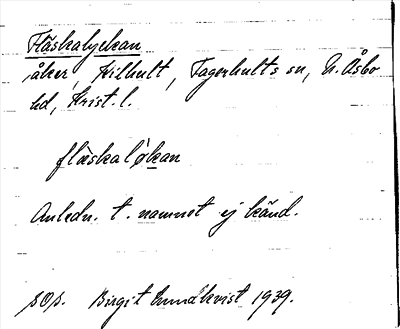 Fläskalyckan
åker, Kilhult, Fagerhults sn, N. Åsbo
hd, Krist. l.
fläskaløkan
Anledn. t. namnet ej känd.
SOS. Birgit Lundkvist 1939.